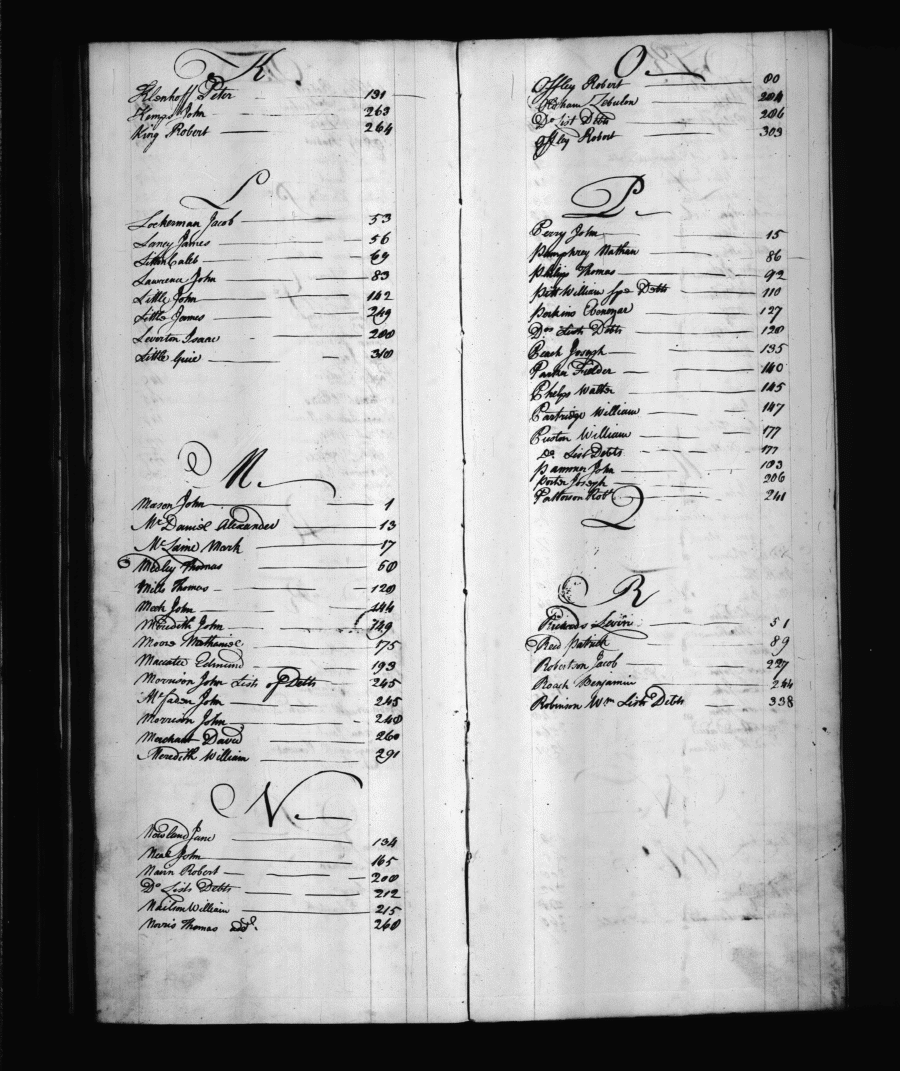 K.
Klenhoff Peter 131
Kemp John 263
King Robert 264
L
Lockerman Jacob 53
Laney James 56
Caleb 69
Lawrence John 83
Little John 142
Little James 249
Leverton Isaac 280
Little 310
M.
Mason John 1
Mc Daniel Alexander 13
Mc Laine Mark 17
Medley Thomas 60
Mills Thomas 120
Meek John 144
Meredith John 149
Moore Nathaniel 175
Edmund 193
Morrison John Lists of Debts 245
Mc Faden John 245
Morrison John 240
Merchant David 260
Meredith William 291
N.
Newland Jane 134
Neal John 165
Nann Robert 208
Do Lists Debts 212
William 215
Norris Thomas 260
O
Offley Robert 80
Oldham Zebulon 204
Do List Debts 206
Offley Robert 303
P.
Perry John 15
Pumphrey Nathan 86
Philips Thomas 92
Pitt William Debts 110
Perkins Ebenezar 127
Do Lists Debts 130
Peach Joseph 135
Parker Fielder 140
Phelps Walter 145
Partridge William 147
Preston William 177
Do List Debts 177
John 183
Porter Joseph 206
Patterson Robt 241
Q
R
Richards Levin 51
Reed Patrick 89
Robertson Jacob 227
Roach Benjamin 244
Robinson Wm Lists Debts 338